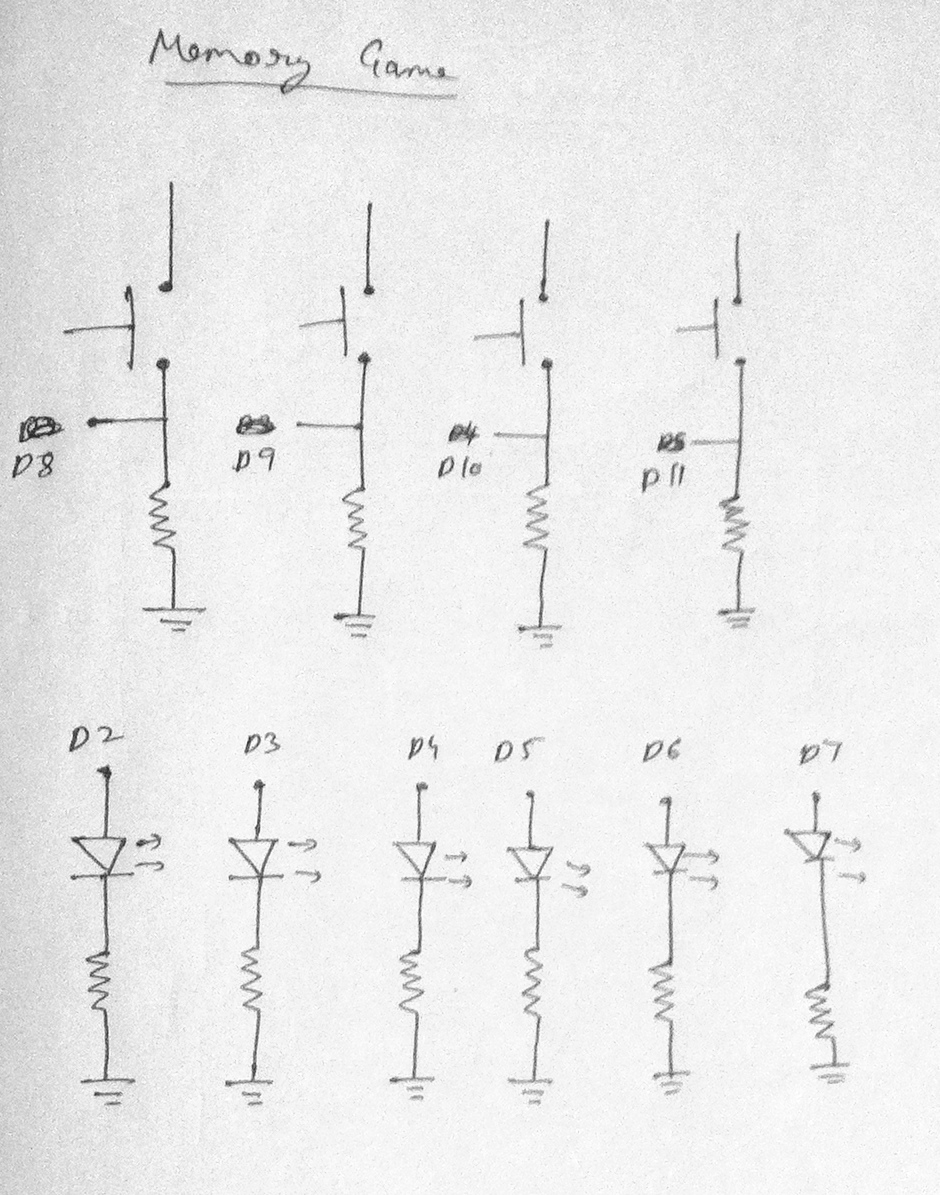 Memory Game
D4 D5
D8 D9 D10 D11
D2 D3 D4 D5 D6 D7